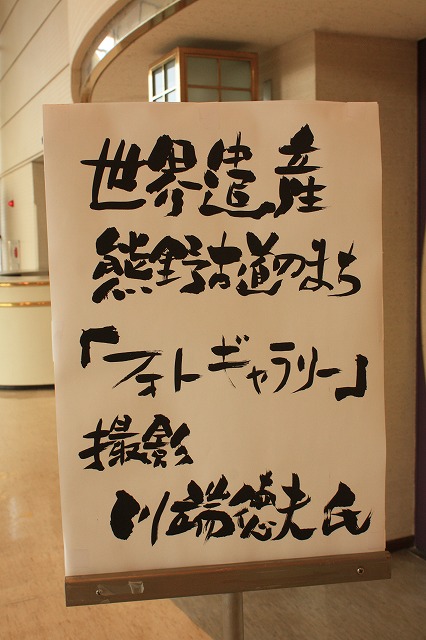 世界遺産
熊野古道のまち
「フォトギャラリー」
撮影
川端徳夫氏